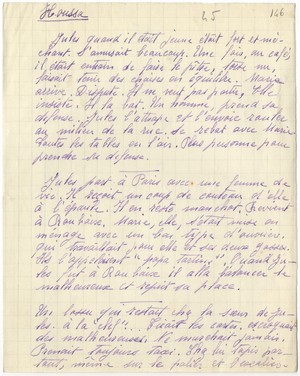 Houssa
45
146
Jules quand il était jeune était fort et mé-
chant. S'amusait beaucoup. Une fois, au café,
il était entrain de faire le pitre, ivre,
faisait tenir des chaises en équilibre. Maria
arrive. Dispute. Il ne veut pas partir. Elle
insiste. Il la bat. Un homme, prend sa
défense. Jules l'attrape et l'envoie rouler
au milieu de la rue. Se rebat avec Maria
toutes les tables en l'air. Plus personne pour
prendre sa défense.
Jules part à Paris avec une femme de
vie. Il reçoit un coup de couteau d'elle
à l'épaule. Il en resta manchot. Revient
à Roubaix. Marie, elle, s'était mise en
ménage avec un bon type d'ouvrier
qui travaillait pour elle et ses deux gosses.
Ils l'appelaient "papa". Quand Ju-
les fut à Roubaix il alla
malheureux et reprit sa place.
Un qui restait chez la sœur de Ju-
les à la "clef". Tirait les cartes, escroquait
des malheureuses. Ne marchait jamais.
Prenait toujours taxi. Chez lui tapis par-
tout, même sur le palier et l'escalier